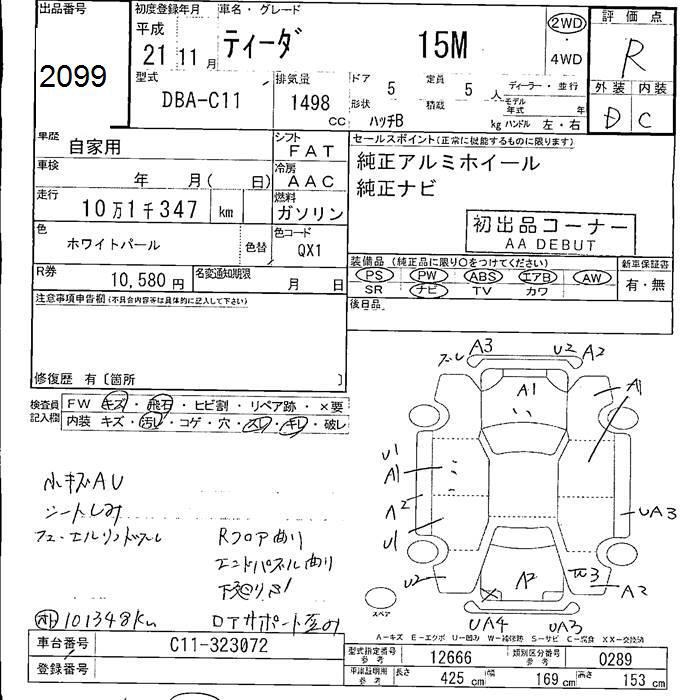 出品番号
2099
初度登録年月
平成
21 11 月
車名・グレード
ティーダ 15M
2WD
4WD
評価点
R
外装 内装
D C
型式
DBA-C11
排気量
1498
CC
ドア 5
定員 5 人
形状 ハッチB
積載 kg
ディーラー・並行
モデル年式 年
ハンドル 左・右
車歴 自家用
シフト FAT
車検 年 月( 日)
冷房 AAC
走行 10万1千347 km
燃料 ガソリン
色 ホワイトパール 色替
色コード QX1
R券 10,580 円
名変通知期限 月 日
セールスポイント(正常に機能するものに限ります)
純正アルミホイール
純正ナビ
初出品コーナー
AA DEBUT
装備品 (純正品に限り○をつけてください)
PS PW ABS エアB AW
SR ナビ TV カワ
新車保証書
有・無
後日品
注意事項申告欄(不具合内容等は具体的に記入して下さい)
修復歴 有〔箇所 〕
検査員記入欄
FW キズ・飛石・ヒビ割・リペア跡・×要
内装 キズ・汚レ・コゲ・穴・スレ・キレ・破レ
小キズAU
シートしみ
Rフロア曲り
エンドパネル曲り
下廻りサビ
101348km
ズレ A3 U2 A2
A1
A1
U1
A1
A2
U1
U2
UA3
A2
A2
スペア
UA4 UA3
A－キズ E－エクボ U－凹み W－補修跡 S－サビ C－腐食 XX－交換済
車台番号 C11-323072
登録番号
型式指定番号 参考 12666
類別区分番号 参考 0289
車検証明用 参考 長さ 425 cm 幅 169 cm 高さ 153 cm